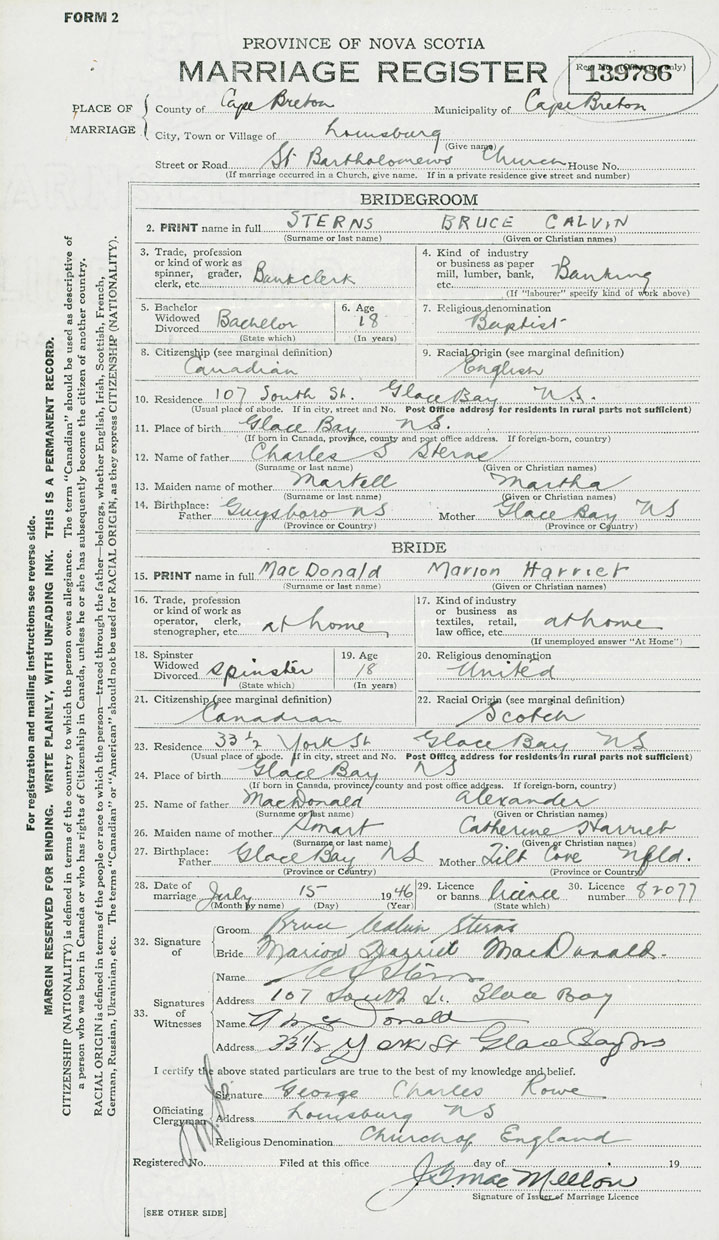 FORM 2
PROVINCE OF NOVA SCOTIA
MARRIAGE REGISTER
Reg. No. (Office use only)
139786
PLACE OF MARRIAGE
County of Cape Breton Municipality of Cape Breton
City, Town or Village of Louisburg
(Give name)
Street or Road St Bartholomews Church House No.
(If marriage occurred in a Church, give name. If in a private residence give street and number)
BRIDEGROOM
2. PRINT name in full STERNS BRUCE CALVIN
(Surname or last name) (Given or Christian names)
3. Trade, profession or kind of work as spinner, grader, clerk, etc. Bankclerk
4. Kind of industry or business as paper mill, lumber, bank, etc. Banking
(If "labourer" specify kind of work above)
5. Bachelor Widowed Divorced Bachelor
(State which)
6. Age 18
(In years)
7. Religious denomination
Baptist
8. Citizenship (see marginal definition)
Canadian
9. Racial Origin (see marginal definition)
English
10. Residence 107 South St. Glace Bay N.S.
(Usual place of abode. If in city, street and No. Post Office address for residents in rural parts not sufficient)
11. Place of birth Glace Bay N.S.
(If born in Canada, province, county and post office address. If foreign-born, country)
12. Name of father Charles S Sterns
(Surname or last name) (Given or Christian names)
13. Maiden name of mother Martell Martha
(Surname or last name) (Given or Christian names)
14. Birthplace: Father Guysboro NS Mother Glace Bay NS
(Province or Country) (Province or Country)
BRIDE
15. PRINT name in full MacDonald Marion Harriet
(Surname or last name) (Given or Christian names)
16. Trade, profession or kind of work as operator, clerk, stenographer, etc. at home
17. Kind of industry or business as textiles, retail, law office, etc. at home
(If unemployed answer "At Home")
18. Spinster Widowed Divorced Spinster
(State which)
19. Age 18
(In years)
20. Religious denomination
United
21. Citizenship (see marginal definition)
Canadian
22. Racial Origin (see marginal definition)
Scotch
23. Residence 33 1/2 York St Glace Bay NS
(Usual place of abode. If in city, street and No. Post Office address for residents in rural parts not sufficient)
24. Place of birth Glace Bay NS
(If born in Canada, province, county and post office address. If foreign-born, country)
25. Name of father MacDonald Alexander
(Surname or last name) (Given or Christian names)
26. Maiden name of mother Smart Catherine Harriet
(Surname or last name) (Given or Christian names)
27. Birthplace: Father Glace Bay NS Mother Tilt Cove Nfld.
(Province or Country) (Province or Country)
28. Date of marriage July 15 1946
(Month by name) (Day) (Year)
29. Licence or banns licence
(State which)
30. Licence number 82077
32. Signature of
Groom Bruce Calvin Sterns
Bride Marion Harriet MacDonald.
33. Signatures of Witnesses
Name Sterns
Address 107 South St. Glace Bay
Name Donald
Address 33 1/2 York St Glace Bay NS
I certify the above stated particulars are true to the best of my knowledge and belief.
Officiating Clergyman
Signature George Charles Rowe
Address Louisburg NS
Religious Denomination Church of England
Registered No. Filed at this office day of 19
Signature of Issuer of Marriage Licence
[SEE OTHER SIDE]
For registration and mailing instructions see reverse side.
MARGIN RESERVED FOR BINDING. WRITE PLAINLY, WITH UNFADING INK. THIS IS A PERMANENT RECORD.
CITIZENSHIP (NATIONALITY) is defined in terms of the country to which the person owes allegiance. The term "Canadian" should be used as descriptive of
a person who was born in Canada or who has rights of Citizenship in Canada, unless he or she has subsequently become the citizen of another country.
RACIAL ORIGIN is defined in terms of the people or race to which the person—traced through the father—belongs, whether English, Irish, Scottish, French,
German, Russian, Ukrainian, etc. The terms "Canadian" or "American" should not be used for RACIAL ORIGIN, as they express CITIZENSHIP (NATIONALITY).